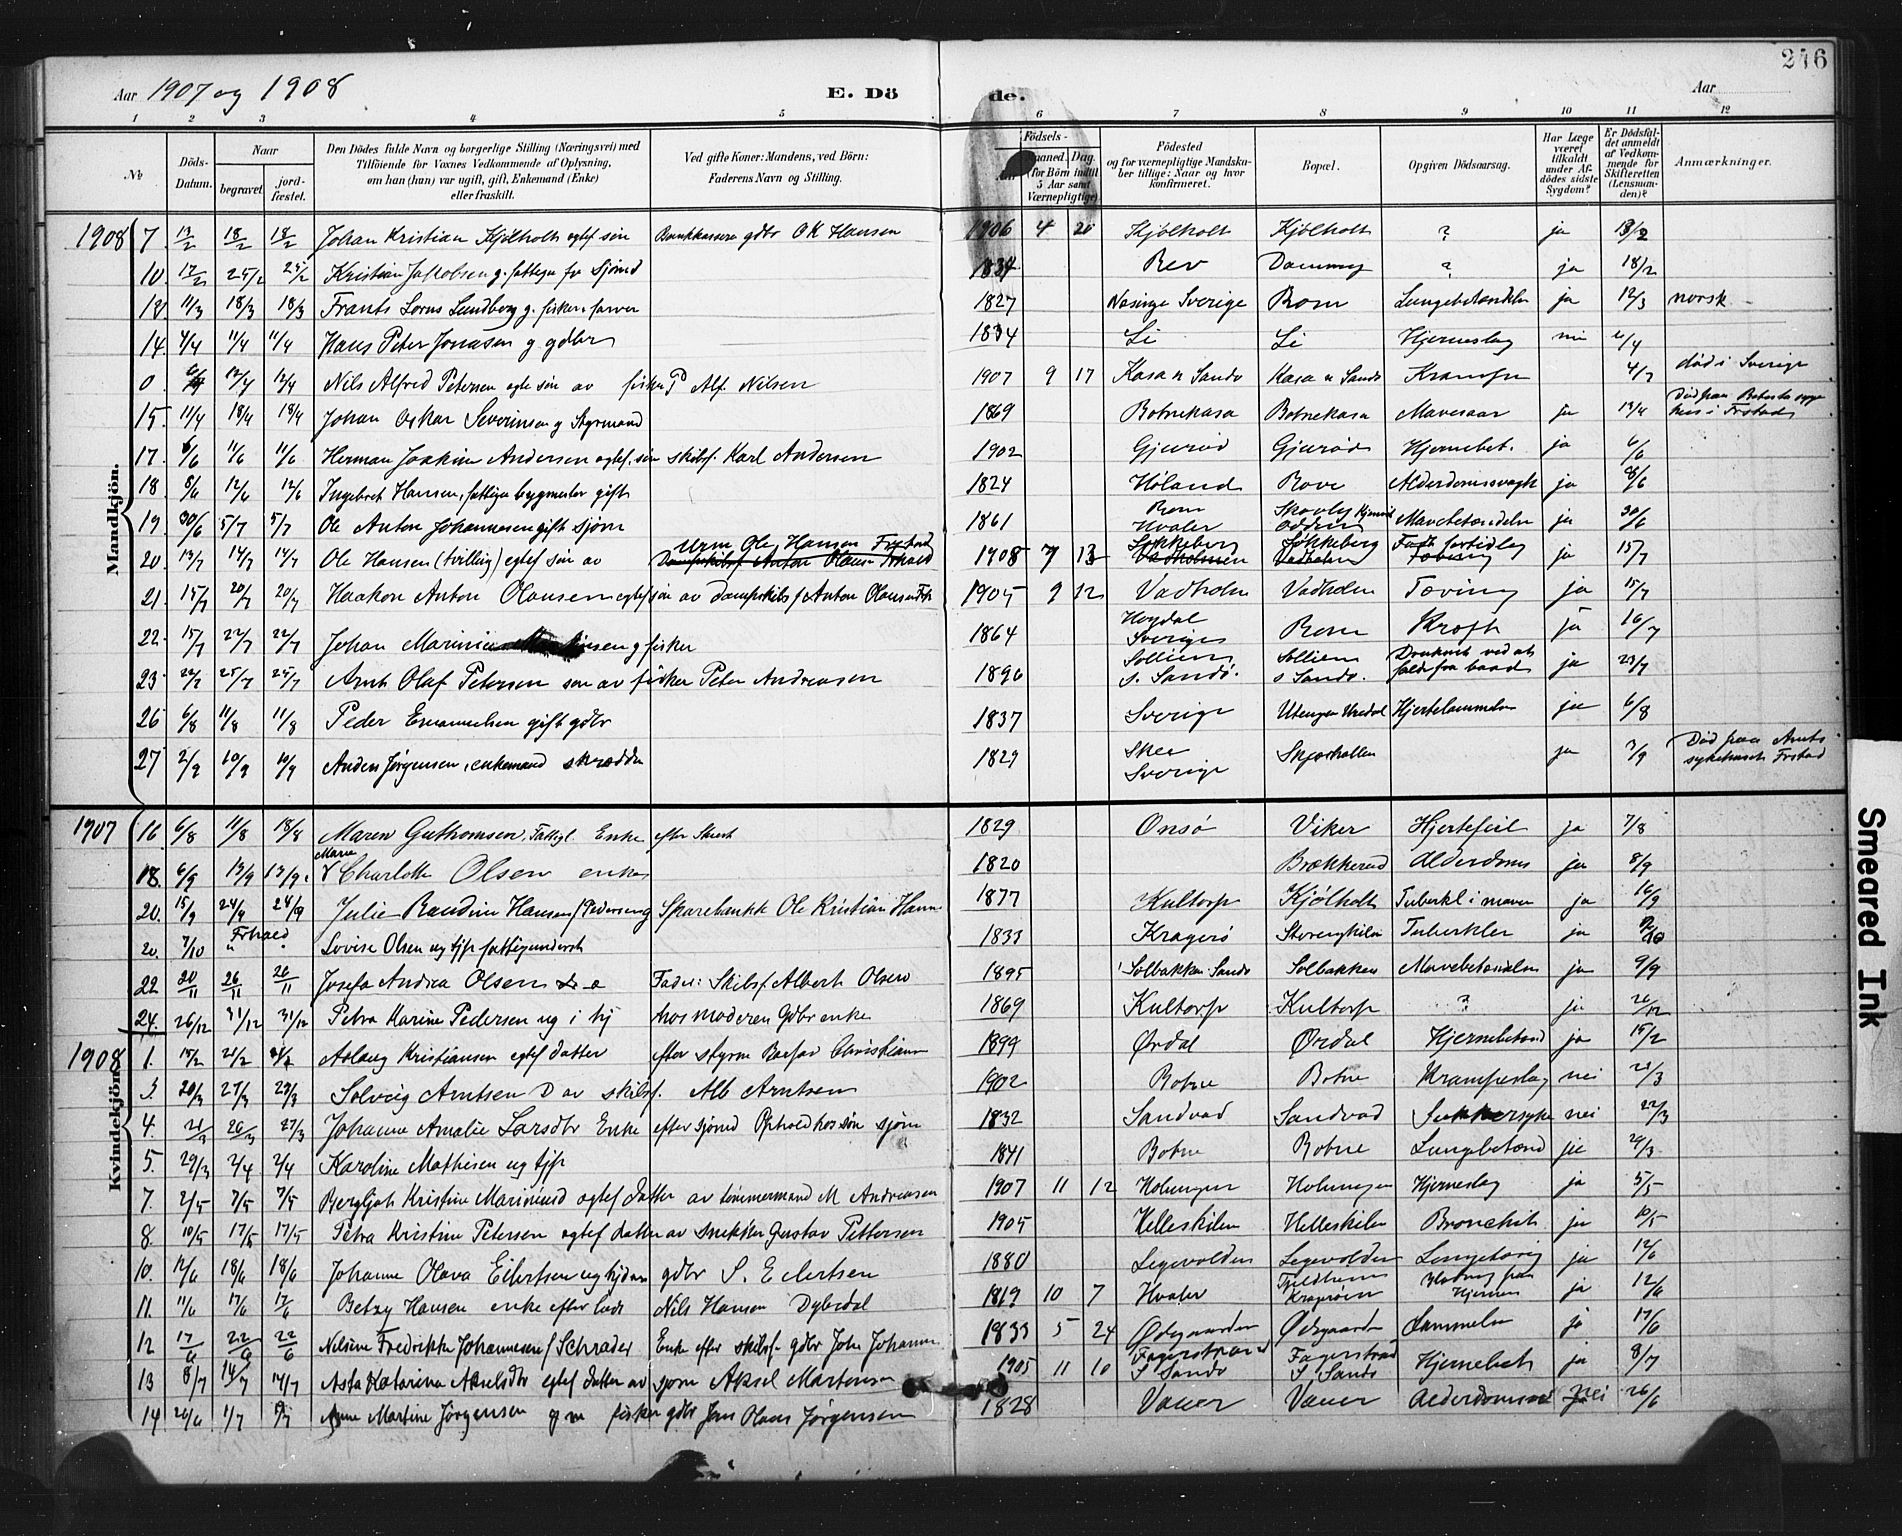 246
Aar 1907 og 1908 E. Dö de. Aar
1 2 3 4 5 6 7 8 9 10 11 12
№ Döds-Datum. Naar begravet. jordfæstet. Den Dödes fulde Navn og borgerlige Stilling (Næringsvei) med Tilföiende for Voxnes Vedkommende af Oplysning, om han (hun) var ugift, gift, Enkemand (Enke) eller fraskilt. Ved gifte Koner: Mandens, ved Börn: Faderens Navn og Stilling. Födsels- Maaned. Dag. (for Börn indtil 5 Aar samt Værnepligtige) Födested og for værnepligtige Mandskaber tillige: Naar og hvor konfirmeret. Bopæl. Opgiven Dödsaarsag. Har Læge været tilkaldt under Afdödes sidste Sygdom? Er Dödsfaldet anmeldt af Vedkommende for Skifteretten (Lensmanden)? Anmærkninger.
Mandkjön.
1908 7 13/2 18/2 18/2 Johan Kristian Kjölholt egtef sön Bankkasserer gdbr O K Hansen 1906 4 20 Kjölholt Kjölholt ? ja 18/2
10 17/2 25/2 25/2 Kristian Jakobsen g. fattig for Sjömd 1834 Rev ? ja 18/2
12 11/3 18/3 18/3 Frants Lorns Lundborg g. fisker 1827 Sverige Rom Lungebetændelse ja 12/3 norsk
14 4/4 11/4 11/4 Hans Peter Jonasen g gdbr 1834 Li Li Hjerneslag nei /4
0 12/4 12/4 Nils Alfred Petersen egte sön av fisker P Alf. Nilsen 1907 9 17 Kasa n Sandö Kasa n Sandö Krampe 4/7 död i Sverige
15 11/4 18/4 18/4 Johan Oskar Severinsen g Styrmand 1869 Botnekasa Botnekasa Mavesaar ja 13/4 Död paa i Frstad
17 6/6 11/6 11/6 Herman Joakim Andersen egtef. sön skibsf. Karl Andersen 1902 Gjuröd Gjuröd Hjernebet. ja 6/6
18 8/6 12/6 12/6 Ingebret Hansen, fattig bygmester gift 1824 Höland Rove Alderdomssvagh ja 8/6
19 30/6 5/7 5/7 Ole Anton Johannesen gift sjöm 1861 Rom Hvaler Mavebetændelse ja 30/6
20 13/7 14/7 14/7 Ole Hansen (tvilling) egtef sön av Ole Hansen Frstad 1908 7 13 Lökkeberg Lökkeberg ja 15/7
21 15/7 20/7 20/7 Haakon Anton Olausen egtef sön av dampskibsf Anton Olausen 1905 9 12 Vadholm Vadholm Tæring ja 15/7
22 15/7 22/7 22/7 Johan g fisker 1864 Hogdal Sverige Rom Kræft ja 16/7
23 22/7 25/7 25/7 Arnt Olaf Petersen sön av fisker Peter Andreasen 1896 Sollien S. Sandö. Sollien S Sandö. Druknet ved at falde fra baad ja 23/7
26 6/8 11/8 11/8 Peder Emanuelsen gift gdbr 1837 Sverige Utengen Urdal Hjertelammelse ja 6/8
27 2/9 10/9 10/9 Anders Jörgensen, enkemand skrædder 1829 Skee Sverige Skjærhallen ja 3/9 Död paa Amts sykehuset Frstad
Kvindekjön.
1907 16 6/8 11/8 18/8 Maren Guthomsen, Fattigl. Enke efter 1829 Onsö Viker Hjertefeil ja 7/8
18. 6/9 13/9 13/9 Marie Charlotte Olsen enke 1820 Brækkerød Alderdoms ja 8/9
20. 15/9 24/9 24/9 Julie Randine Hansen f Pedersen g Sparebankk Ole Kristian Hansen 1877 Kultorp Kjølholt Tuberkl i maven ja 16/9
20. 7/10 Frhald Lovise Olsen ug tjp fattigunderst 1833 Kragerö Storengkilen Tuberkler ja
22 20/11 26/11 26/11 Josefa Andrea Olsen Fader: Skibsf. Albert Olsen 1895 Solbakken Sandö Solbakken Mavebetændelse ja 9/9
24. 26/12 31/12 31/12 Petra Karine Pedersen ug i hj hos moderen Gdbr enke 1869 Kultorp Kultorp ? ja 26/12
1908 1. 15/2 21/2 21/2 Aslaug Kristiansen egtef datter efter styrm Christiansen 1899 Ørdal Ørdal Hjernebetænd ja 15/2
3. 20/3 27/3 29/3 Solveig Arntsen D av skibsf. Alb Arntsen 1902 Botne Botne Krampeslag nei 21/3
4. 21/3 26/3 27/3 Johanne Amalie Larsdtr Enke efter sjömd Ophold hos sön sjöm 1832 Sandvad Sandvad Sukkersyke nei 22/3
5. 29/3 2/4 2/4 Karoline Mathisen ug tjp 1841 Botne Botne Lungebetænd ja 29/3
7. 2/5 7/5 7/5 Bergljot Kristine egtef datter av tömmermand M Andreasen 1907 11 12 Holungen Holungen Hjerneslag ja 5/5
8. 10/5 17/5 17/5 Petra Kristine Petersen egtef datter av snekker Gustav Pettersen 1905 Helleskilen Helleskilen Bronchit ja 10/5
10. 12/6 18/6 18/6 Johanne Olava Eilertsen ug hjdatr gdbr S. Eilertsen 1880 Legevolden Legevolden Lungetæring ja 12/6
11. 11/6 17/6 17/6 Betzy Hansen enke efter lods Nils Hansen Dybedal 1819 10 7 Hvaler ja 12/6
12 17/6 22/6 22/6 Nelsine Fredrikke Johannesen f Schrader Enke efter skibsf. gdbr Joh Johannes 1833 5 24 Ødegaarden Ødegaarden Lammelse ja 17/6
13 8/7 14/7 14/7 Asta Katarina Akselsdtr egtef datter av sjöm Aksel Martensen 1905 11 10 Fagerstrand S Sandö Fagerstrand S. Sandö Hjernebet ja 8/7
14 26/6 1/7 Anne Martine Jörgensen g m fisker gdbr Jens Olaus Jörgensen 1828 Vauer Vauer Alderdomss nei 26/6
Smeared Ink